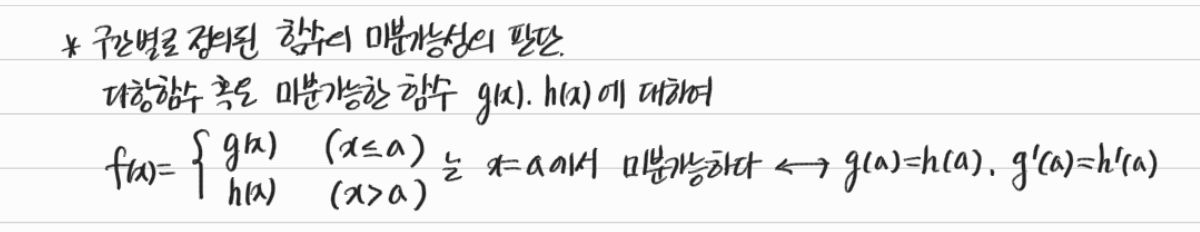 * 구간별로 정의된 함수의 미분가능성의 판단.
다항함수 혹은 미분가능한 함수 g(x). h(x)에 대하여
f(x)= { g(x) (x≤a) h(x) (x>a) 는 x=a에서 미분가능하다 ⟷ g(a)=h(a). g'(a)=h'(a)